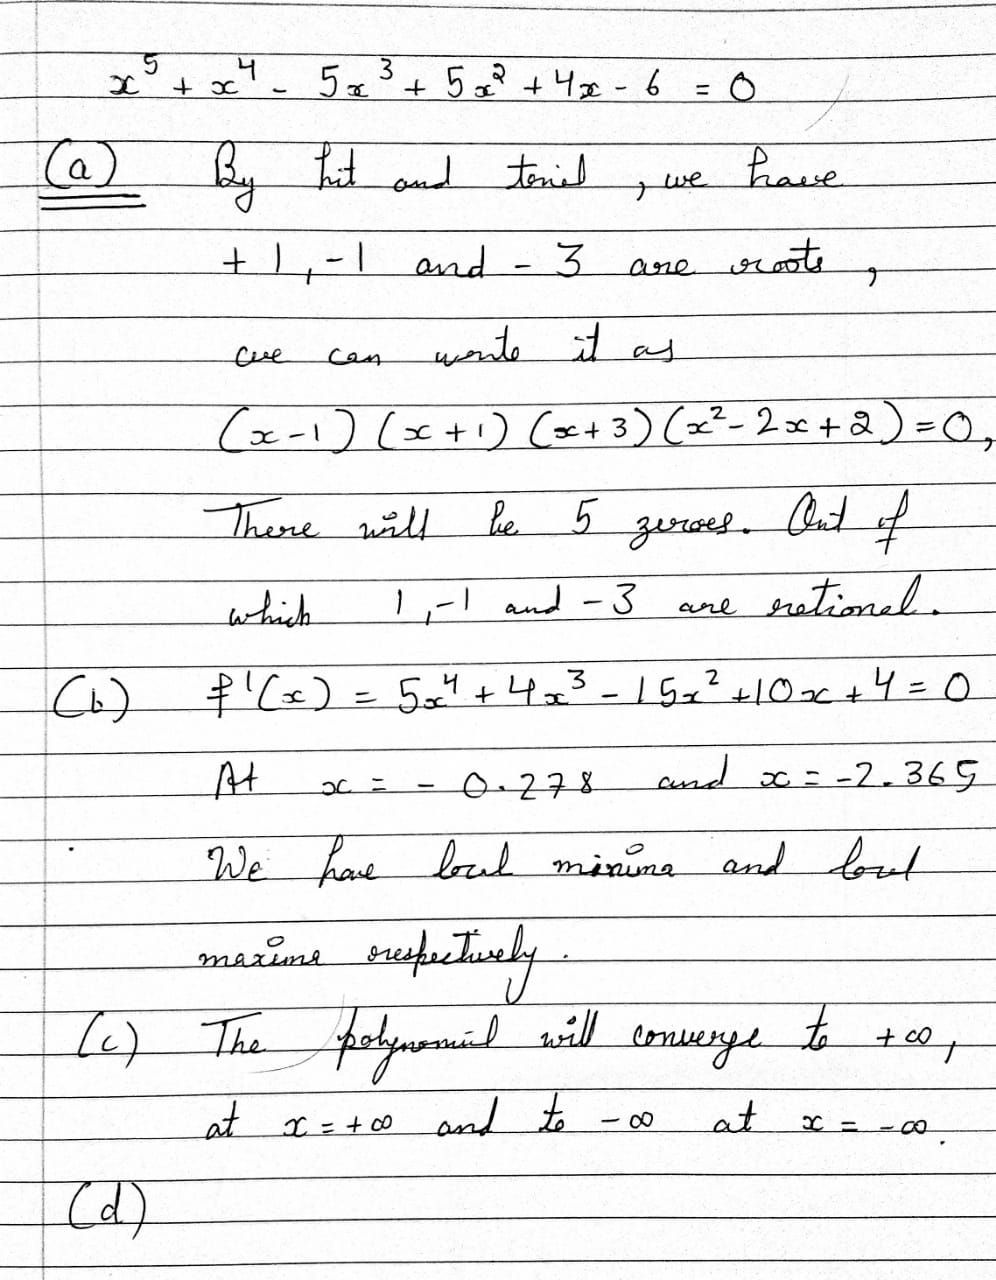 x⁵ + x⁴ - 5x³ + 5x² + 4x - 6 = 0
(a) By hit and torial, we have
+1, -1 and - 3 are roots,
we can write it as
(x-1) (x+1) (x+3) (x²- 2x+2) = 0,
There will be 5 zeroes. Out of
which 1, -1 and - 3 are rational.
(b) f'(x) = 5x⁴ + 4x³ - 15x² +10x + 4 = 0
At x = - 0.278 and x = -2.365
We have local minima and local
maxima respectively.
(c) The polynomial will converge to +∞,
at x = +∞ and to -∞ at x = -∞.
(d)